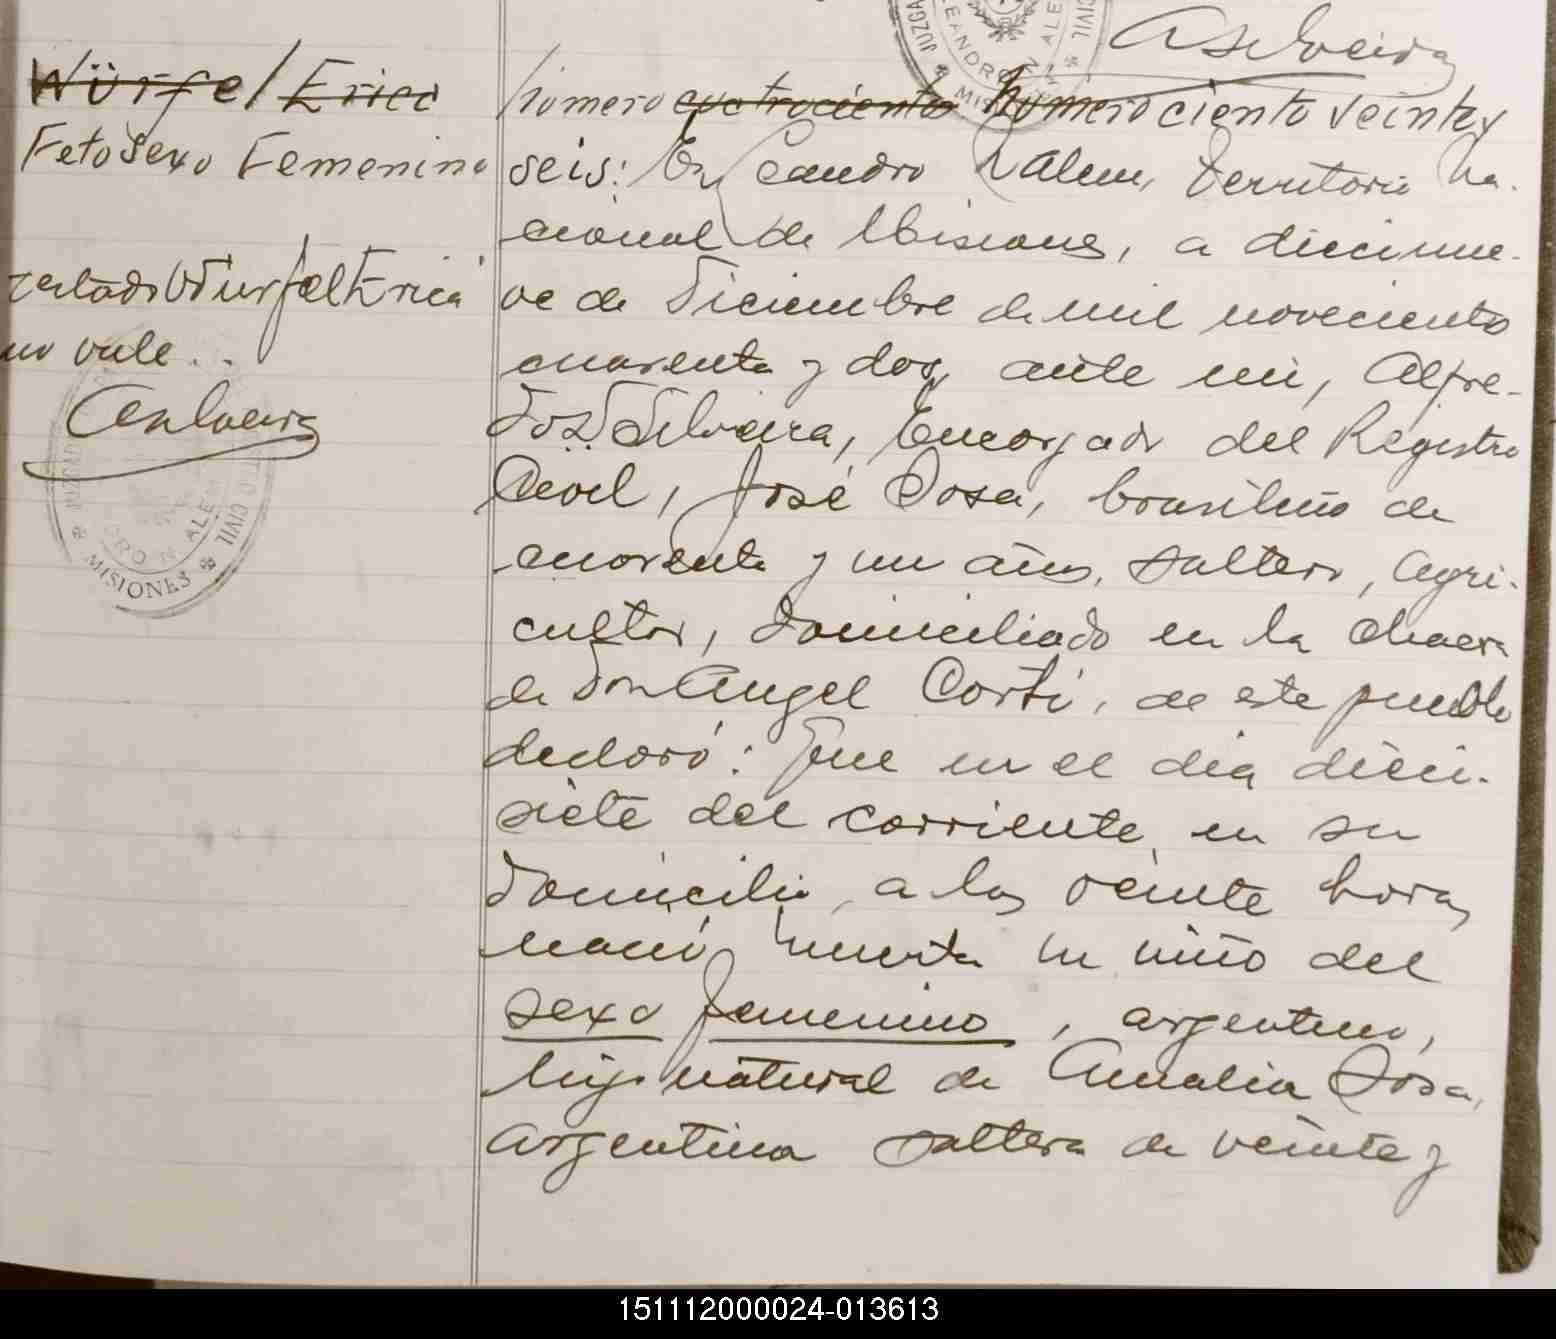 ASilveira
JUZGA
CIVIL
LEANDRO N. ALEM
MISIONES
Würfel Erica
Feto Sexo Femenino
testado Würfel Erica
no vale..
ASilveira
JUZGADO
CIVIL
DRO N. ALEM
MISIONES
Número cuatrocientos Número ciento veinte y
seis: En Leandro N Alem, Territorio Na-
cional de Misiones, a diecinue-
ve de Diciembre de mil novecientos
cuarenta y dos, ante mi, Alfre-
do Silveira, Encargado del Registro
Civil, José Sosa, brasileño de
cuarenta y un años, soltero, Agri-
cultor, domiciliado en la chacra
de Don Angel Corti, de este pueblo
declaró: Que en el día dieci-
siete del corriente, en su
domicilio, a las veinte horas
nació muerta un niño del
sexo femenino, argentino,
hijo natural de Amalia Sosa,
argentina soltera de veinte y
151112000024-013613